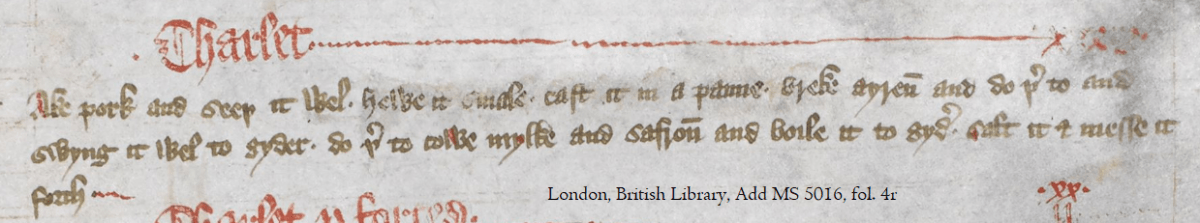 Charlet
Take pork and seeþ it wel. hewe it smale. cast it in a panne. breke ayreñ and do þ̉ to and
swyng it wel to gyder. do þ̉ to cowe mylke and safroñ and boile it to gyd̉. salt it & messe it
forth
London, British Library, Add MS 5016, fol. 4r
.xx.